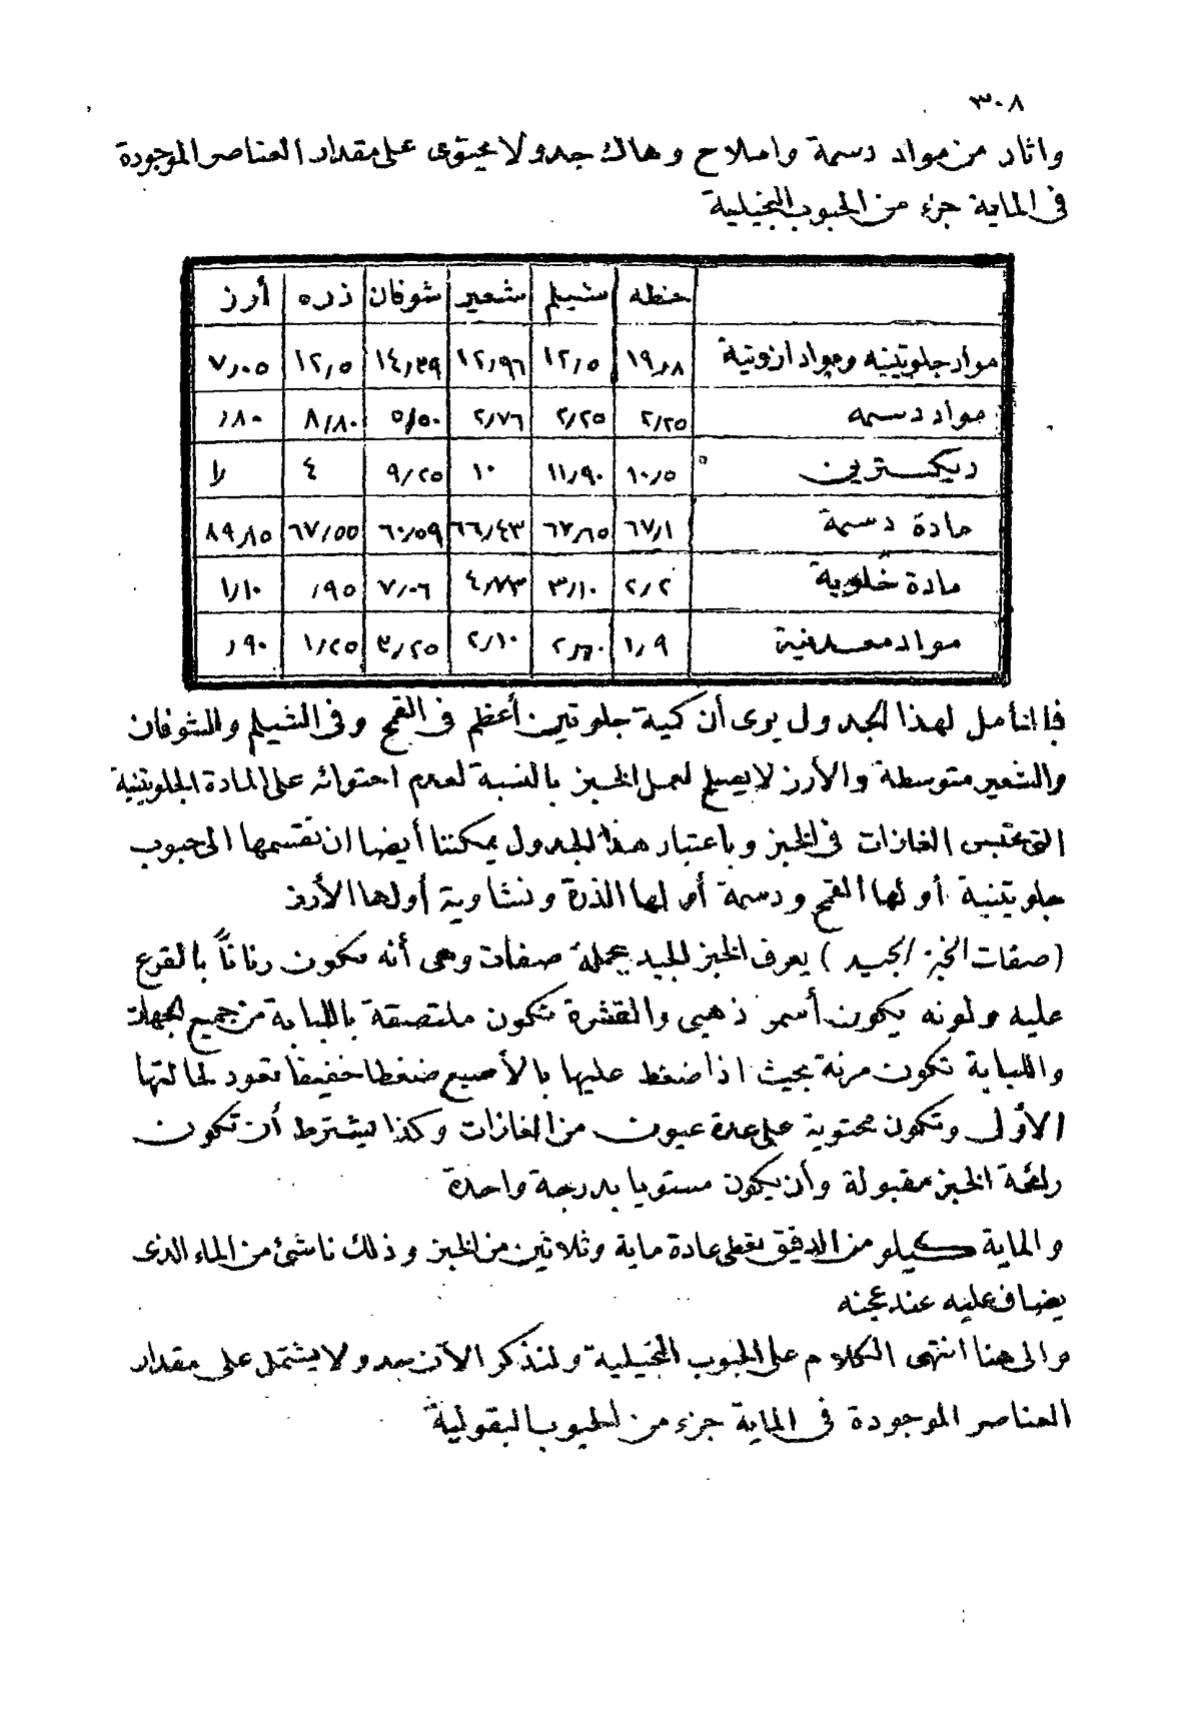 ٣٠٨
واثار من مواد دسمة واملاح وهاك جدولا يحتوى على مقدار العناصر الموجودة
فى الماية جزء من الحبوب النجيلية
حنطه شيلم شعير شوفان ذره أرز
مواد جلوتينيه ومواد ازوتية ١٩٫٨ ١٢٫٥ ١٢٫٩٦ ١٤٫٣٩ ١٢٫٥ ٧٫٠٥
مواد دسمه ٢٫٢٥ ٢٫٢٥ ٢٫٧٦ ٥٫٥٠ ٨٫٨٠ ٫٨٠
ديكسترين ١٠٫٥ ١١٫٩٠ ١٠ ٩٫٢٥ ٤ ١٫
مادة دسمة ٦٧٫١ ٦٧٫٦٥ ٦٦٫٤٣ ٦٠٫٥٩ ٦٧٫٥٥ ٨٩٫٨٥
مادة خلوية ٢٫٢ ٣٫١٠ ٤٫٧٣ ٧٫٠٦ ٫٩٥ ١٫١٠
مواد معدنية ١٫٩ ٢٫٦٠ ٢٫١٠ ٣٫٢٥ ١٫٢٥ ٫٩٠
فالتأمل لهذا الجدول يرى أن كمية جلوتين أعظم فى القمح وفى الشيلم والشوفان
والشعير متوسطة والأرز لا يصلح لعمل الخبز بالنسبة لعدم احتوائه على المادة الجلوتينية
التى تحتبس الغازات فى الخبز وباعتبار هذا الجدول يمكننا أيضا ان نقسمها الى حبوب
جلوتينية أولها القمح ودسمة أولها الذرة ونشاوية أولها الأرز
(صفات الخبز الجيد) يعرف الخبز الجيد بجملة صفات وهى أنه يكون رناناً بالقرع
عليه ولونه يكون أسمر ذهبى والقشرة تكون ملتصقة باللبابة من جميع الجهات
واللبابة تكون مرنة بحيث اذا ضغط عليها بالأصبع ضغطا خفيفا تعود لحالتها
الأولى وتكون محتوية على عدة عيون من الغازات وكذا يشترط أن تكون
رائحة الخبز مقبولة وأن يكون مستويا بدرجة واحدة
والماية كيلو من الدقيق يعطى عادة ماية وثلاثين من الخبز وذلك ناشئ من الماء الذى
يضاف عليه عند عجنه
والى هنا انتهى الكلام على الحبوب النجيلية ولنذكر الآن جدولا يشتمل على مقدار
العناصر الموجودة فى الماية جزء من الحبوب البقولية